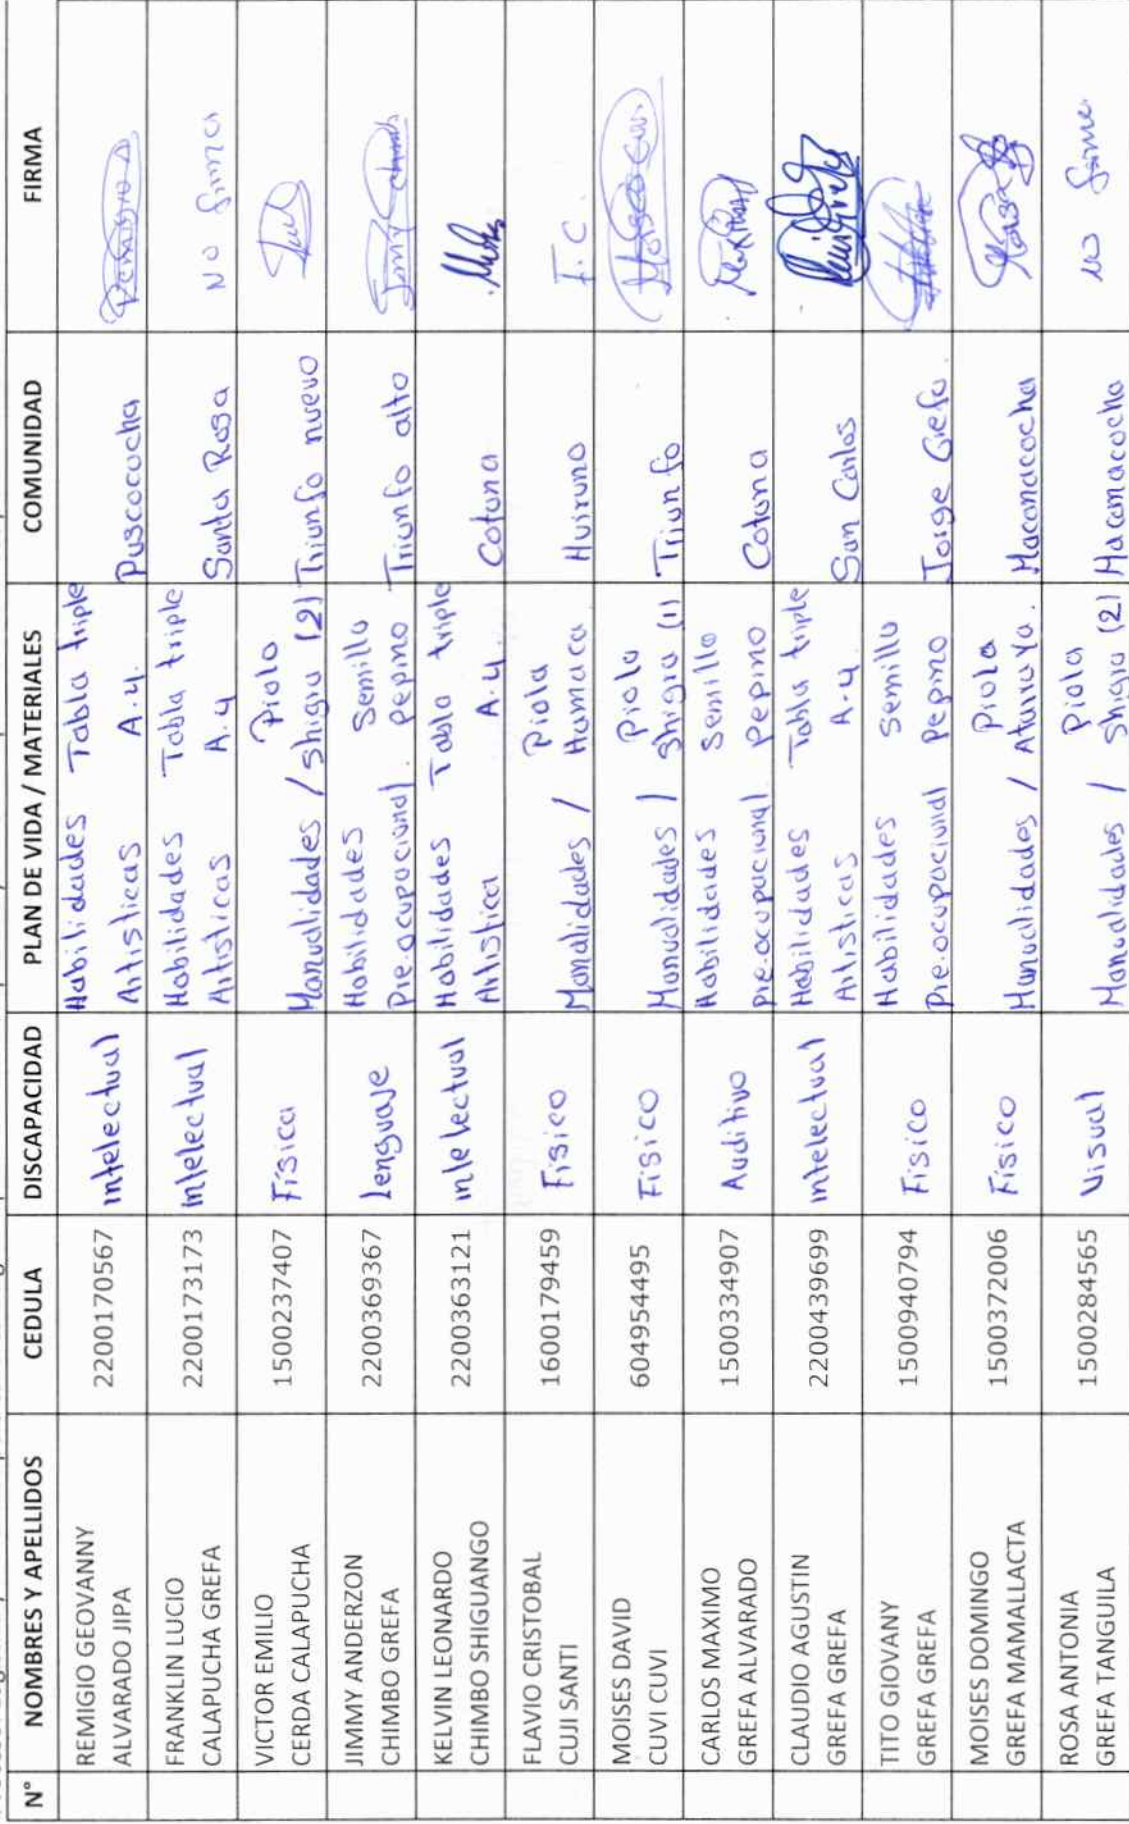 N° NOMBRES Y APELLIDOS CEDULA DISCAPACIDAD PLAN DE VIDA / MATERIALES COMUNIDAD FIRMA
REMIGIO GEOVANNY
ALVARADO JIPA 2200170567 intelectual Habilidades Tabla triple
Artisticas A.4. Puscocucha Remigio A
FRANKLIN LUCIO
CALAPUCHA GREFA 2200173173 intelectual Habilidades Tabla triple
Artisticas A.4 Santa Rosa NO firma
VICTOR EMILIO
CERDA CALAPUCHA 1500237407 Física Piola
Manualidades / Shigra (2) Triunfo nuevo
JIMMY ANDERZON
CHIMBO GREFA 2200369367 lenguaje Habilidades Semilla
Pre.ocupacional. pepino Triunfo alto
KELVIN LEONARDO
CHIMBO SHIGUANGO 2200363121 intelectual Habilidades Tabla triple
Artistica A.4. Cotona
FLAVIO CRISTOBAL
CUJI SANTI 1600179459 Fisico Piola
Manualidades / Hamaca Huiruno F.C.
MOISES DAVID
CUVI CUVI 604954495 Fisico Piola
Manualidades / Shigra (1) Triunfo
CARLOS MAXIMO
GREFA ALVARADO 1500334907 Auditivo Habilidades Semilla
pre.ocupacional pepino Cotona
CLAUDIO AGUSTIN
GREFA GREFA 2200439699 intelectual Habilidades Tabla triple
Artisticas A.4 San Carlos
TITO GIOVANY
GREFA GREFA 1500940794 Fisico Habilidades Semilla
Pre.ocupacional Pepino Jorge Grefa.
MOISES DOMINGO
GREFA MAMALLACTA 1500372006 Fisico Piola
Manualidades / Atarraya. Macanacocha
ROSA ANTONIA
GREFA TANGUILA 1500284565 Visual Piola
Manualidades / Shigra (2) Macamacocha no firma